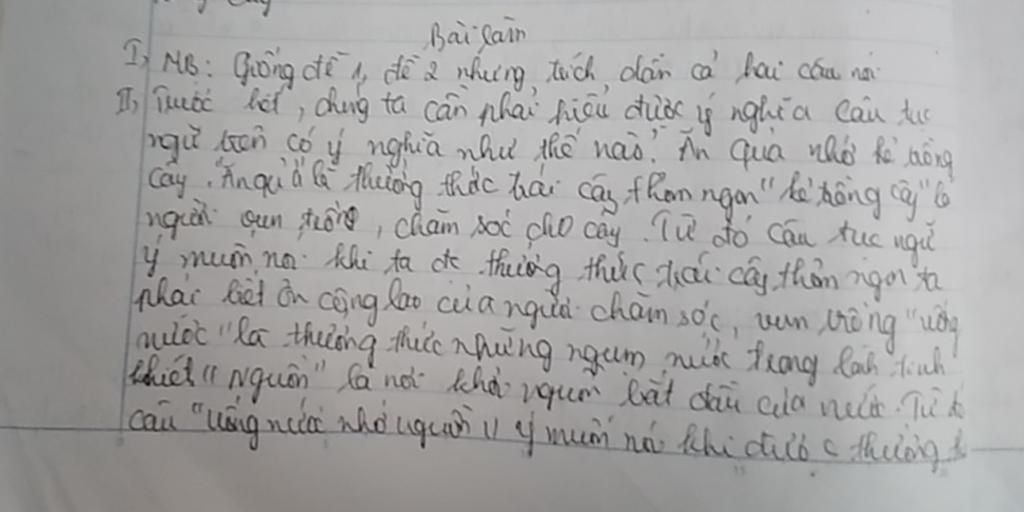 Bài làm
I, MB: Giống đề 1, đề 2 nhưng trích dẫn cả hai câu nói
II, Trước hết, chúng ta cần phải hiểu được ý nghĩa câu tục
ngữ trên có ý nghĩa như thế nào? Ăn quả nhớ kẻ trồng
cây. "Ăn quả" là thưởng thức trái cây thơm ngon "kẻ trồng cây" là
người vun trồng, chăm sóc cho cây. Từ đó câu tục ngữ
ý muốn nói khi ta đc thưởng thức trái cây thơm ngon ta
phải biết ơn công lao của người chăm sóc, vun trồng "uống
nước" là thưởng thức những ngụm nước trong lành tinh
khiết "Nguồn" là nơi khởi nguồn bắt đầu của nước. Từ đó
câu "uống nước nhớ nguồn" ý muốn nói khi được thưởng